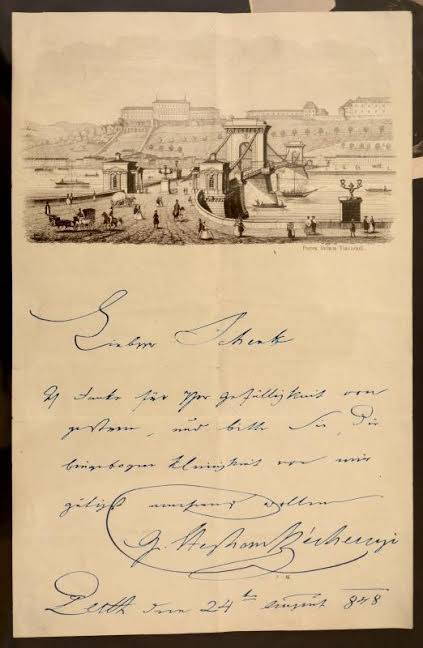 Lieber Schenk
Ich danke für Ihre Gefälligkeit von
gestern, und bitte Sie, die
beigebogene Kleinigkeit von mir
gütigst annehmen wollen
Gr. Stephan Széchenyi
Pesth den 24t August 848